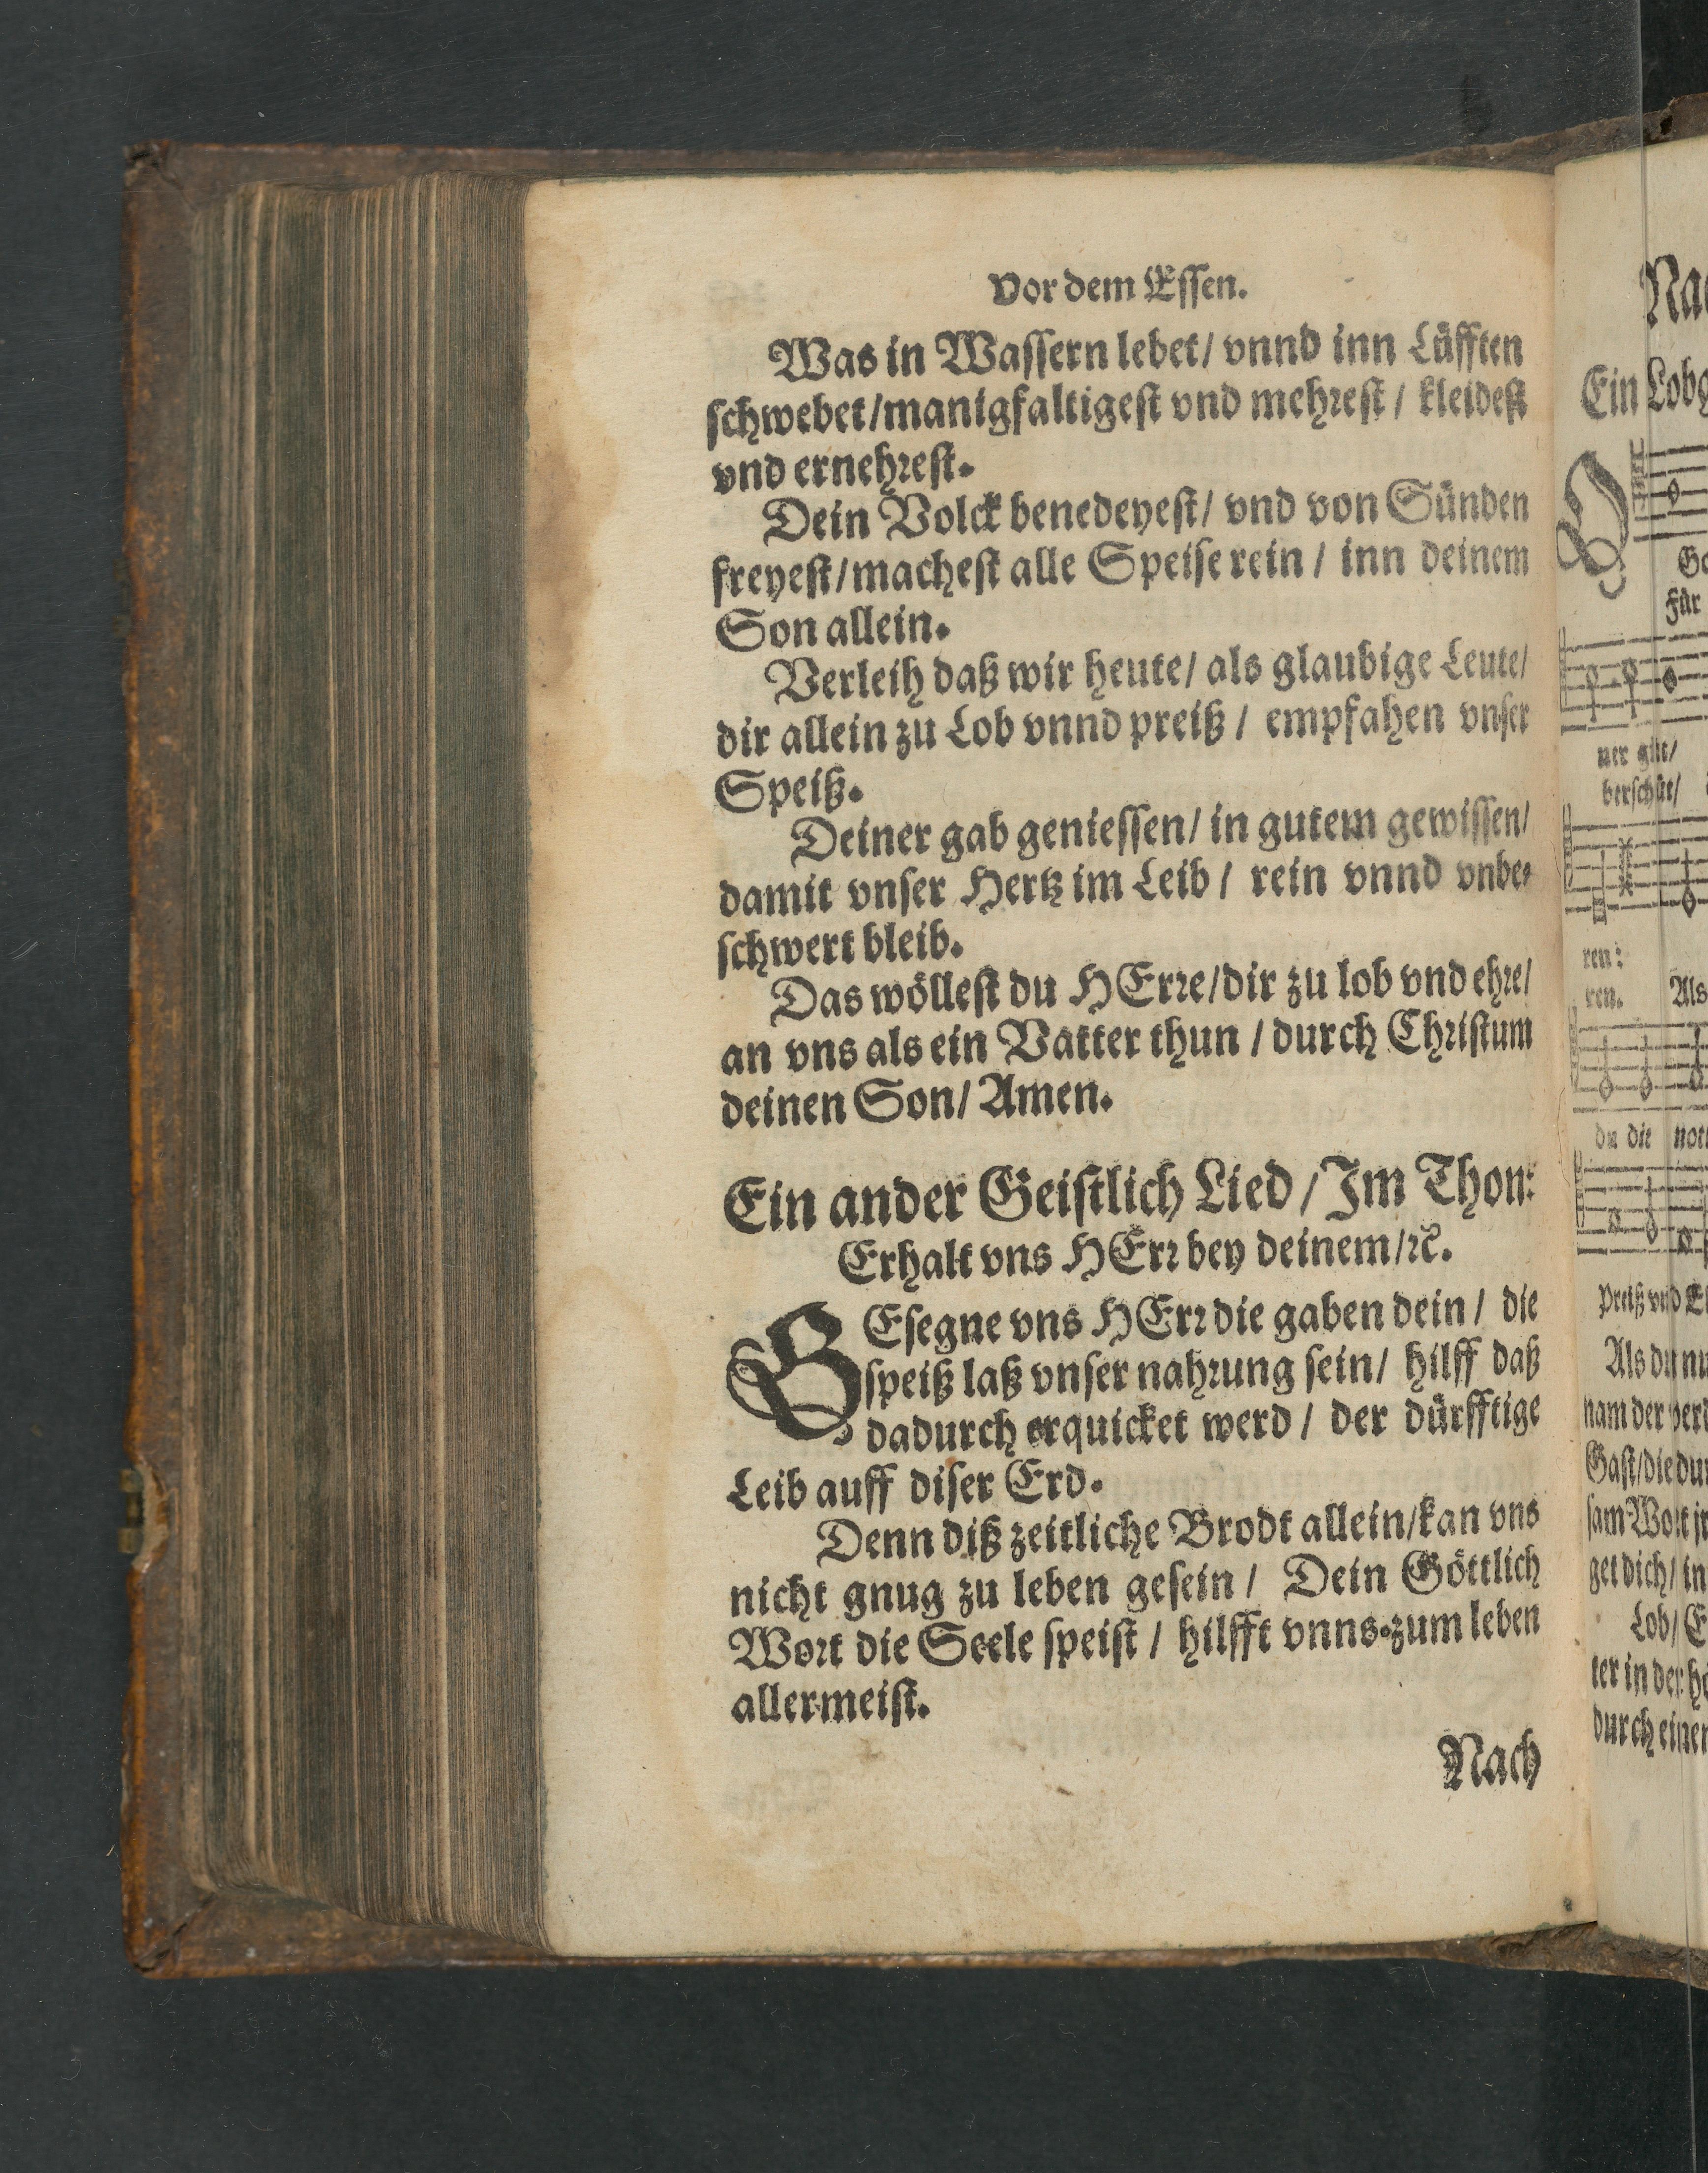 Vor dem Essen.
Was in Wassern lebet/ vnnd inn Lüfften
schwebet/manigfaltigest vnd mehrest/ kleidest
vnd ernehrest.
Dein Volck benedeyest/ vnd von Sünden
freyest/machest alle Speise rein/ inn deinem
Son allein.
Verleih daß wir heute/ als glaubige Leute/
dir allein zu Lob vnnd preiß/ empfahen vnser
Speiß.
Deiner gab geniessen/ in gutem gewissen/
damit vnser Hertz im Leib/ rein vnnd vnbe-
schwert bleib.
Das wöllest du HErre/dir zu lob vnd ehre/
an vns als ein Vatter thun/durch Christum
deinen Son/ Amen.
Ein ander Geistlich Lied/Im Thon:
Erhalt vns HErr bey deinem/ꝛc.
GEsegne vns HErr die gaben dein/ die
speiß laß vnser nahrung sein/ hilff daß
dadurch erquicket werd/ der dürfftige
Leib auff diser Erd.
Denn diß zeitliche Brodt allein/kan vns
nicht gnug zu leben gesein/ Dein Göttlich
Wort die Seele speist/ hilfft vnns zum leben
allermeist.
Nach
Ein
Für
ner güt/
berschüt/
ren:
ren. Als
du die
Preiß vnd
Als du
nam der
Gast/die
sam Wort
get dich/ in
Lob/
ter in der
durch einen